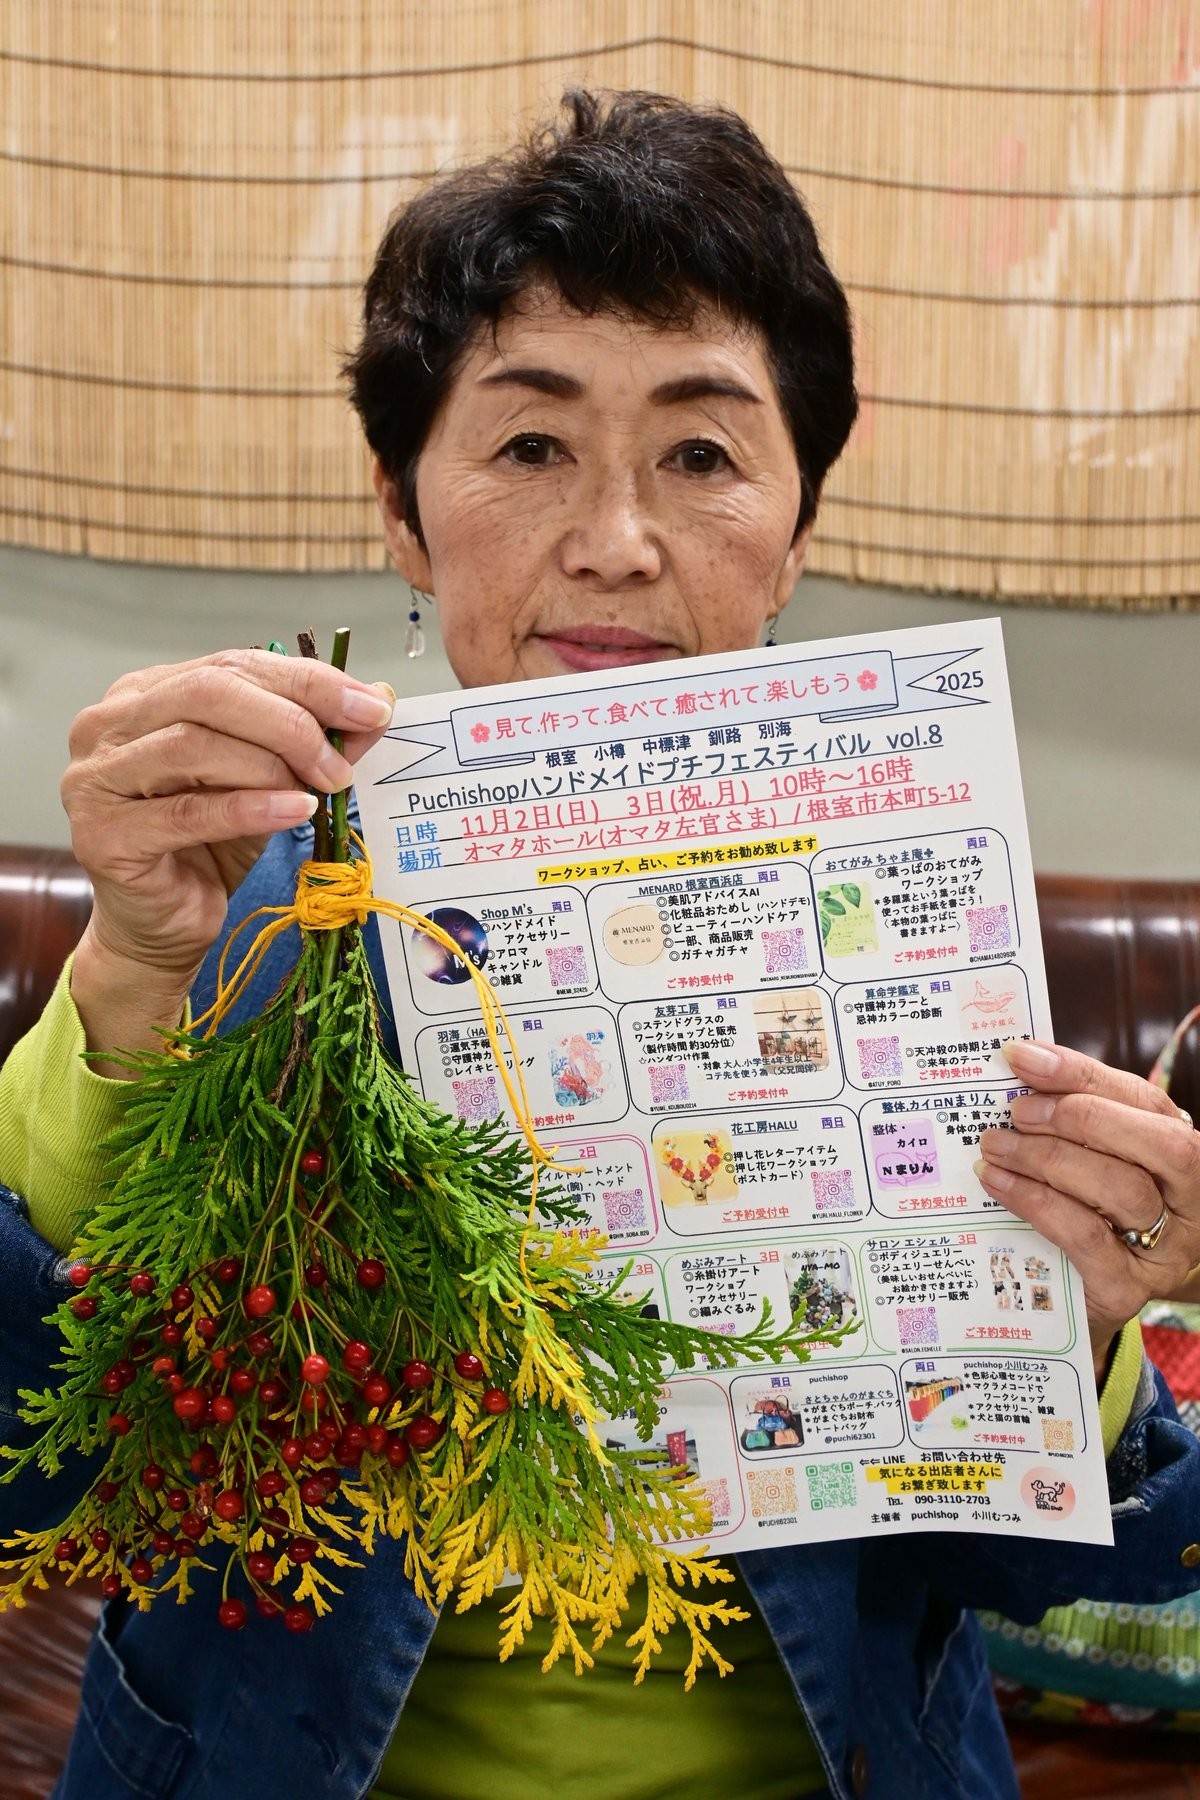 見て.作って.食べて.癒されて.楽しもう
2025
根室 小樽 中標津 釧路 別海
Puchishopハンドメイドプチフェスティバル vol.8
日時 11月2日(日) 3日(祝.月) 10時〜16時
場所 オマタホール(オマタ左官さま) /根室市本町5-12
ワークショップ、占い、ご予約をお勧め致します
Shop M's 両日
◎ハンドメイド
アクセサリー
◎アロマ
キャンドル
◎雑貨
M's
MENARD 根室西浜店 両日
◎美肌アドバイスAI
◎化粧品おためし (ハンドデモ)
◎ビューティーハンドケア
◎一部、商品販売
◎ガチャガチャ
ご予約受付中
MENARD
おてがみ ちゃま庵 両日
◎葉っぱのおてがみ
ワークショップ
*多羅葉という葉っぱを
使ってお手紙を書こう!
(本物の葉っぱに
書きますよー)
ご予約受付中
@CHAMA14809936
羽海 (HARU) 両日
◎運気予報
◎守護神カラー
◎レイキヒーリング
ご予約受付中
友芽工房 両日
◎ステンドグラスの
ワークショップと販売
(製作時間 約30分位)
☆ハンダつけ作業
・対象 大人,小学生4年生以上
コテ先を使う為(父兄同伴)
ご予約受付中
@YUME_KOUBOU0214
算命学鑑定 両日
◎守護神カラーと
忌神カラーの診断
算命学鑑定
◎天冲殺の時期と過ごし方
◎来年のテーマ
ご予約受付中
@ATUY_PORO
2日
花工房HALU 両日
◎押し花レターアイテム
◎押し花ワークショップ
(ポストカード)
ご予約受付中
@YURI.HALU_FLOWER
整体,カイロNまりん 両日
整体・
カイロ
Nまりん
◎肩・首マッサ
身体の疲れ
整え
ご予約受付中
3日
めぶみアート 3日
◎糸掛けアート
ワークショップ
・アクセサリー
◎編みぐるみ
めぶみアート
NYA-MO
サロン エシェル 3日
◎ボディジュエリー
◎ジュエリーせんべい
(美味しいおせんべいに
お絵かきできますよ)
◎アクセサリー販売
エシェル
ご予約受付中
@SALON.ECHELLE
両日 puchishop
さとちゃんのがまぐち
*がまぐちポーチ.バック
*がまぐちお財布
*トートバッグ
@puchi62301
両日 puchishop 小川むつみ
*色彩心理セッション
*マクラメコードで
ワークショップ
*アクセサリー、雑貨
*犬と猫の首輪
ご予約受付中
@PUCHI62301
LINE
⇐⇐ LINE お問い合わせ先
気になる出店者さんに
お繋ぎ致します
℡ 090-3110-2703
主催者 puchishop 小川むつみ